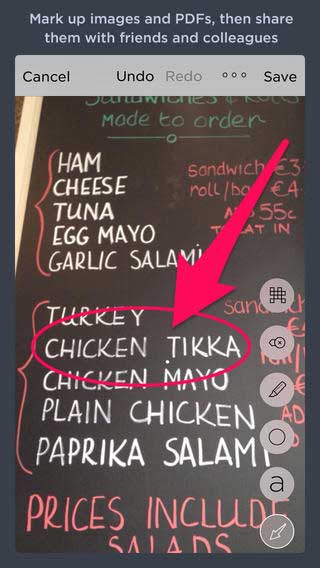 Mark up images and PDFs, then share
them with friends and colleagues
Cancel Undo Redo Save
Sandwiches & Rolls
Made to order
HAM
CHEESE
TUNA
EGG MAYO
GARLIC SALAMI
Sandwich €3
roll/bap €4
55c
EAT IN
TURKEY
CHICKEN TIKKA
CHICKEN MAYO
PLAIN CHICKEN
PAPRIKA SALAMI
PRICES INCLUDE
SALADS
a